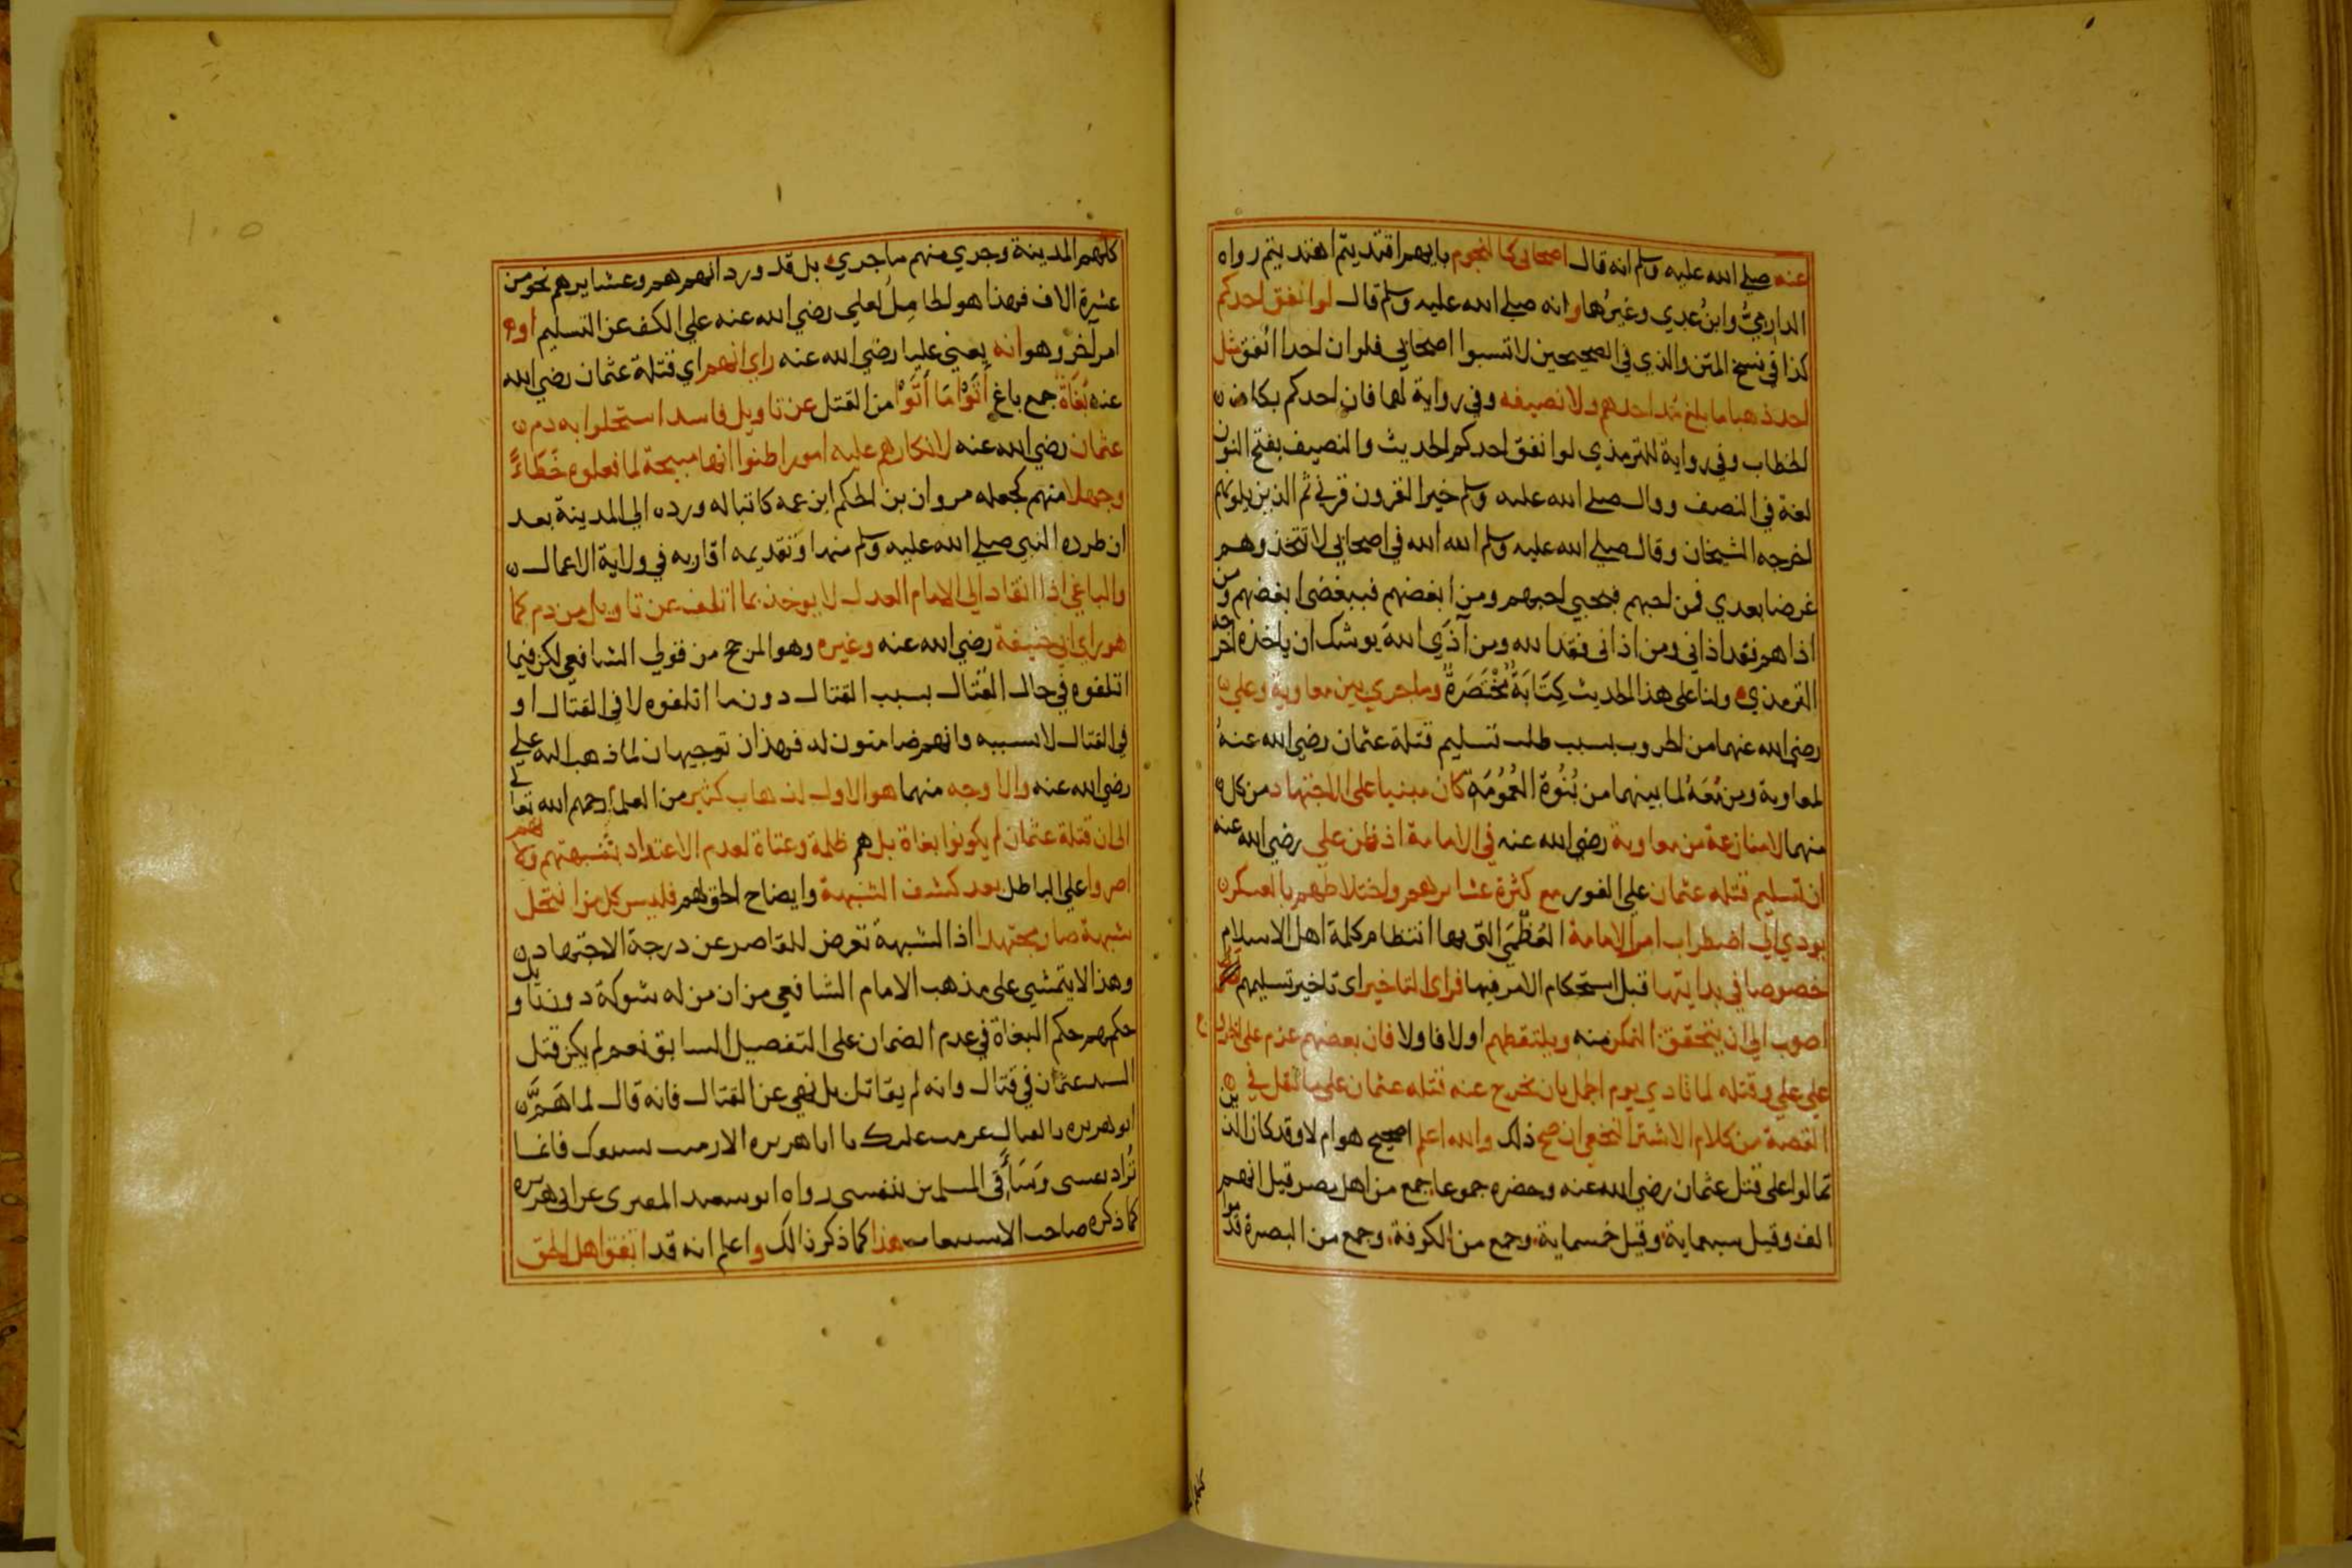 عنه صلى الله عليه وسلم انه قال اصحابي كالنجوم بايهم اقتديتم اهتديتم رواه
الدارمي وابن عدي وغيرهما وانه صلى الله عليه وسلم قال لو انفق احدكم
كذا في نسخ المتن والذي في الصحيحين لا تسبوا اصحابي فلو ان احدا انفق مثل
احد ذهبا ما بلغ مد احدهم ولا نصيفه وفي رواية لهما فان احدكم بكاف
الخطاب وفي رواية للترمذي لو انفق احدكم الحديث والنصيف بفتح النون
لغة في النصف وقال صلى الله عليه وسلم خير القرون قرني ثم الذين يلونهم
اخرجه الشيخان وقال صلى الله عليه وسلم الله الله في اصحابي لا تتخذوهم
غرضا بعدي فمن احبهم فبحبي احبهم ومن ابغضهم فببغضي ابغضهم ومن
اذاهم فقد اذاني ومن اذاني فقد اذى الله ومن آذى الله يوشك ان ياخذه اخرجه
الترمذي ولنا على هذا الحديث كِتَابَةٌ مُخْتَصَرَةٌ وما جري بين معاوية وعلي
رضي الله عنهما من الحروب بسبب طلب تسليم قتلة عثمان رضي الله عنه
لمعاوية ومن مَعَهُ لما بينهما من بُنُوَّةِ العُمُومَةِ كان مبنيا على الاجتهاد من كل
منهما لا منازعة من معاوية رضي الله عنه في الامامة اذ ظن علي رضي الله عنه
ان تسليم قتلة عثمان على الفور مع كثرة عشايرهم واختلاطهم بالعسكر
يودي الى اضطراب امر الامامة العُظْمَى التى بها انتظام كلمة اهل الاسلام
خصوصا في بدايتها قبل استحكام الامر فيها فراى التاخير اى تاخير تسليمهم
اصوب الى ان يتحقق التمكن منه ويلتقطهم اولا فاولا فان بعضهم عزم على الخروج
على علي وقتله لما نادي يوم الجمل بان يخرج عنه قتلة عثمان على ما نقل في
القصة من كلام الاشتر النخعي ان صح ذلك والله اعلم اصحيح هو ام لا وقد كان الذين
تمالوا على قتل عثمان رضي الله عنه وحضره جموعا جمع من اهل مصر قيل انهم
الف وقيل سبعماية وقيل خمسماية وجمع من الكوفة وجمع من البصرة قدموا
كلهم المدينة وجري منهم ما جري بل قد ورد انهم هم وعشايرهم نحو من
عشرة الاف فهذا هو الحامل لعلي رضي الله عنه على الكف عن التسليم او
امر آخر وهو انه يعني عليا رضي الله عنه راى انهم اي قتلة عثمان رضي الله
عنه بُغَاةٌ جمع باغ أَتَوْا مَا أَتَوْا من القتل عن تاويل فاسد استحلوا به دم
عثمان رضي الله عنه لانكارهم عليه امورا ظنوا انها مبيحة لما فعلوه خَطَاءً
وجهلا منهم كجعله مروان بن الحكم ابن عمه كاتبا له ورده الى المدينة بعد
ان طرده النبي صلى الله عليه وسلم منها وتقديمه اقاربه في ولاية الاعمال
والباغي اذا انقاد الى الامام العدل لا يوخذ بما اتلف عن تاويل من دم كما
هو راى ابي حنيفة رضي الله عنه وغيره وهو المرجح من قولي الشافعي لكن فيما
اتلفوه في حال القتال بسبب القتال دون ما اتلفوه لا في القتال او
في القتال لا بسببه وانهم ضامنون له فهذان توجيهان لما ذهب اليه علي
رضي الله عنه والاوجه منهما هو الاول لذهاب كثير من العلما رحمهم الله تعالى
الى ان قتلة عثمان لم يكونوا بغاة بل هم ظلمة وعتاة لعدم الاعتداد بشبهتهم ولانهم
اصروا على الباطل بعد كشف الشبهة وايضاح الحق لهم فليس كل من انتحل
شبهة صار مجتهدا اذ الشبهة تعرض للقاصر عن درجة الاجتهاد
وهذا لا يتمشى على مذهب الامام الشافعي من ان من له شوكة دون تاويل
حكمهم حكم البغاة في عدم الضمان على التفصيل السابق نعم لم يكن قتل
السيد عثمان في قتال وانه لم يقاتل بل نهى عن القتال فانه قال لما هَمَّ
ابو هريره بالقتال عزمت عليك يا ابا هريره الا رميت سيفك فانما
تُراد نفسى وسَأَقي المسلمين بنفسى رواه ابو سعيد المقبرى عن ابى هريره
كما ذكره صاحب الاستيعاب هذا كما ذكر ذالك واعلم انه قد اتفق اهل الحق